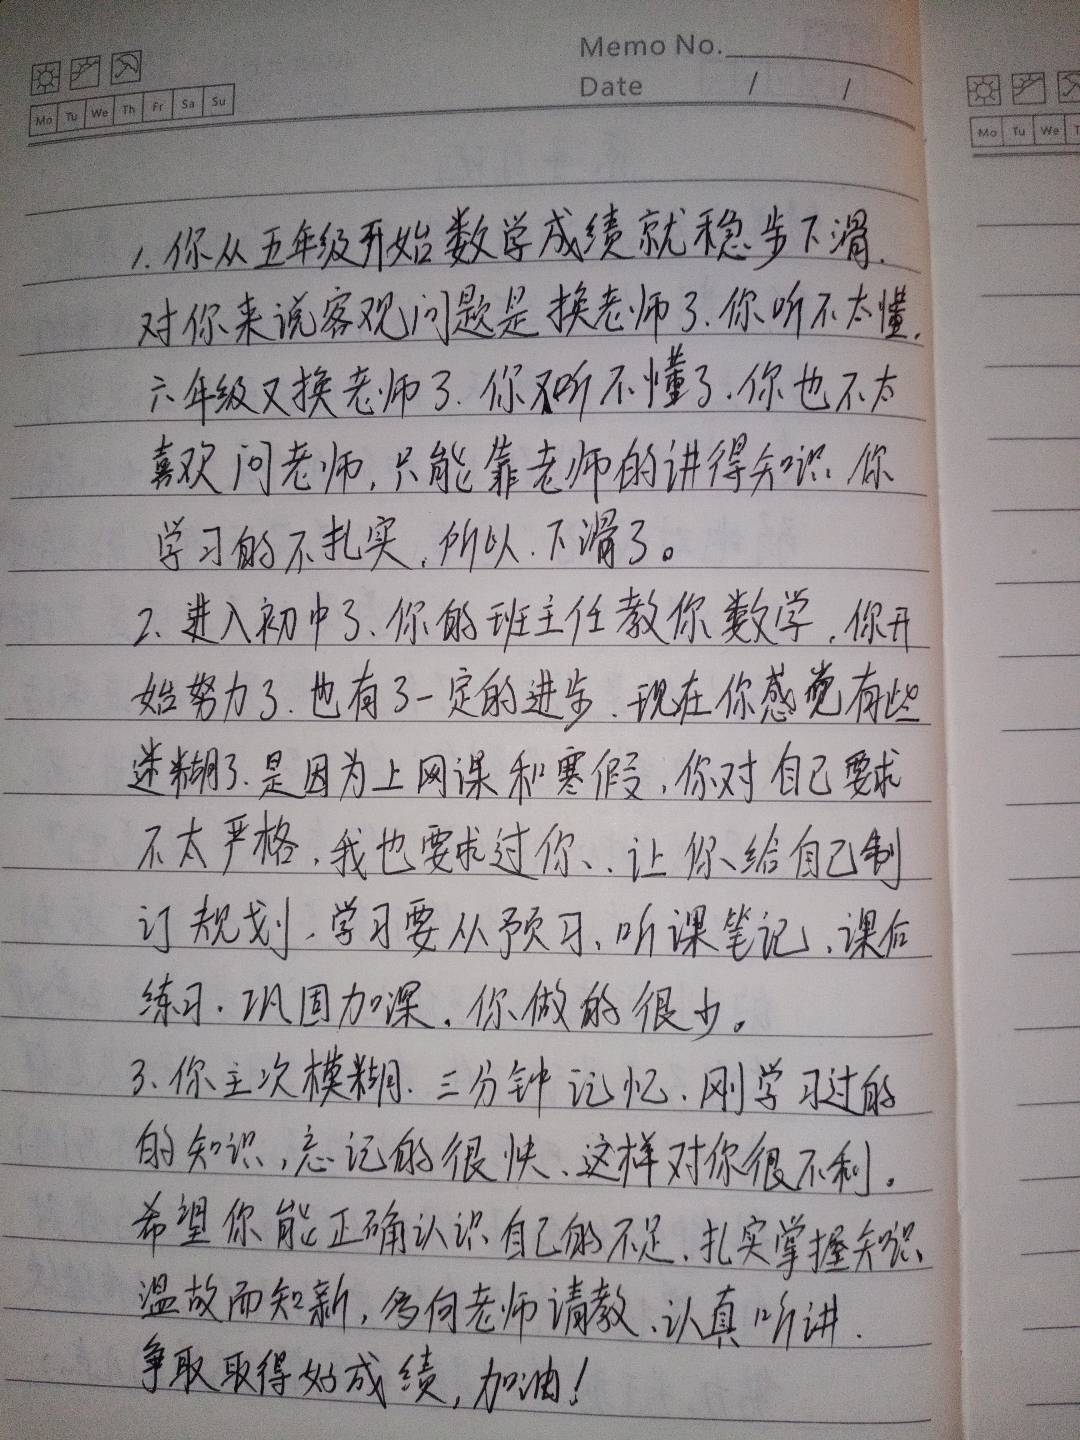 Memo No.
Date / /
Mo Tu We Th Fr Sa Su
Mo Tu We T
1.你从五年级开始数学成绩就稳步下滑.
对你来说客观问题是换老师了.你听不太懂,
六年级又换老师了.你又听不懂了.你也不太
喜欢问老师,只能靠老师的讲得知识.你
学习的不扎实,所以.下滑了。
2、进入初中了、你的班主任教你数学,你开
始努力了.也有了一定的进步.现在你感觉有些
迷糊了.是因为上网课和寒假,你对自己要求
不太严格,我也要求过你、.让你给自己制
订规划,学习要从预习、听课笔记、课后
练习.巩固加深.你做的很少。
3、你主次模糊.三分钟记忆.刚学习过的
的知识,忘记的很快、这样对你很不利。
希望你能正确认识自己的不足、扎实掌握知识、
温故而知新,多向老师请教、认真听讲.
争取取得好成绩,加油!